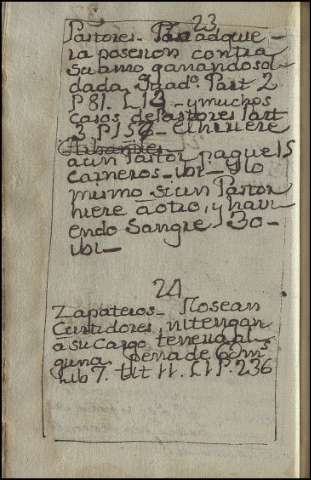 23
Pastores - Pastor adquie -
ra posesion contra
su amo ganando sol
dada. Part 2
P 81. L 13 - y muchos
casos de pastores Part
3 P 157 - El hiriere
a un Pastor pague 15
carneros - ibi - y lo
mismo si un Pastor
hiere a otro, y havi
endo Sangre 30 -
ibi -
24
Zapateros - No sean
Curtidores, ni tengan
a su cargo teneria al
guna. pena de 60 ms
lib 7. tit 11. L 1 P. 236